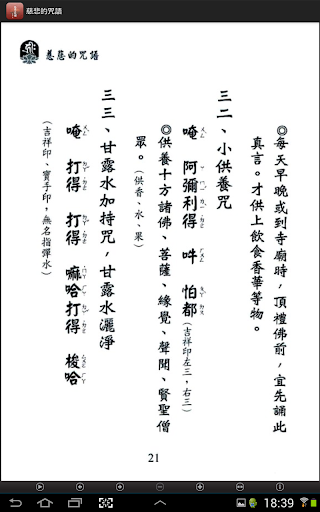 慈悲的咒語
慈悲的咒語
◎每天早晚或到寺廟時，頂禮佛前，宜先誦此
真言。才供上飲食香華等物。
三二、小供養咒
唵　阿彌利得　吽　怕都（吉祥印左三，右三）
◎供養十方諸佛、菩薩、緣覺、聲聞、賢聖僧
眾。（供香、水、果）
三三、甘露水加持咒，甘露水灑淨
唵　打得　打得　嘛哈打得　梭哈
（吉祥印、寶手印，無名指彈水）
21
18:39